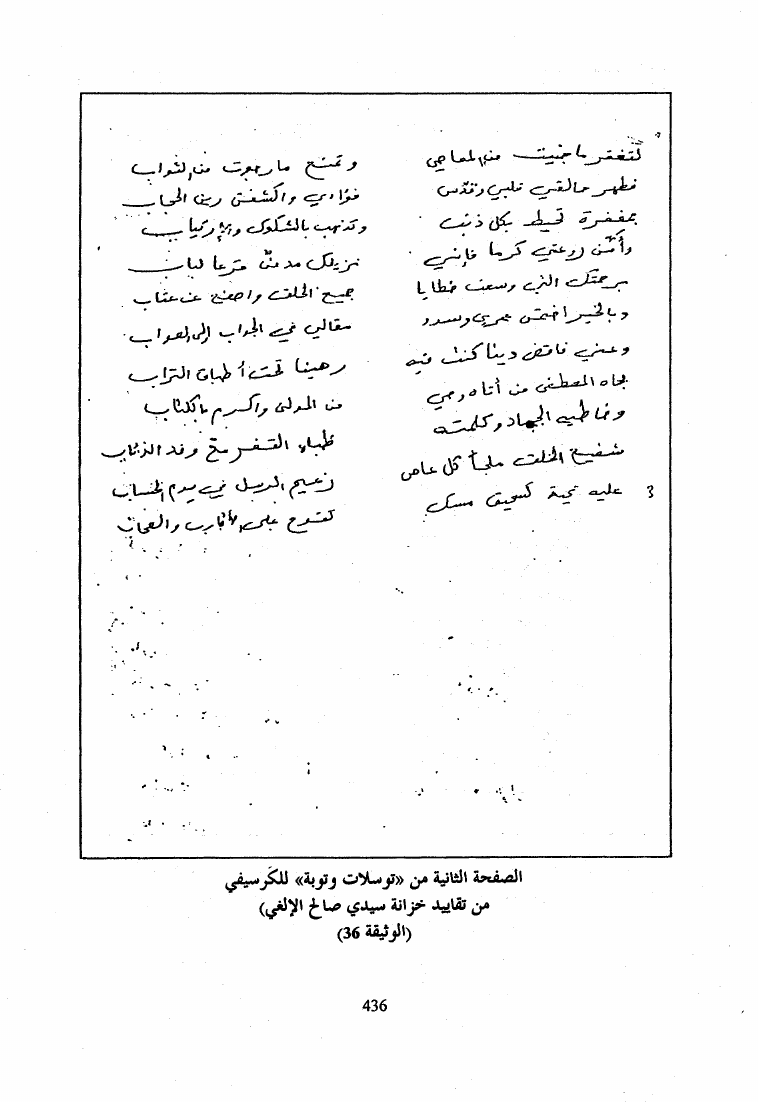 لتغفر ما جنيت من المعاصي وتمنح ما رجوت من الثواب
فطهر خالقي قلبي وقدس فؤادي واكشفن رين الحجاب
بمغفرة تحيط بكل ذنب وتذهب بالشكوك وبارتياب
وأمّن روعتي كرما فإني نزيلك مدمنٌ قرعا لباب
برحمتك التي وسعت خطايا جميع الخلق واصفح عن عتاب
وبالخير اختمن عمري وسدد مقالي في الجواب إلى الصواب
وعني فاقض دينا كنت فيه رهينا تحت أطباق التراب
بجاه المصطفى من أتاه وحي من المولى وأكرم بالكتاب
وخاطبه الجماد وكلمته ظباء القفر مع وفد الذئاب
شفيع الخلق ملجأ كل عاص زعيم الرسل في يوم الحساب
3 عليه تحية كسحيق مسك تفوح على الأقارب والصحاب
الصفحة الثانية من «توسلات وتوبة» للكَرسيفي
من تقاييد خزانة سيدي صالح الإلغي)
(الوثيقة 36)
436